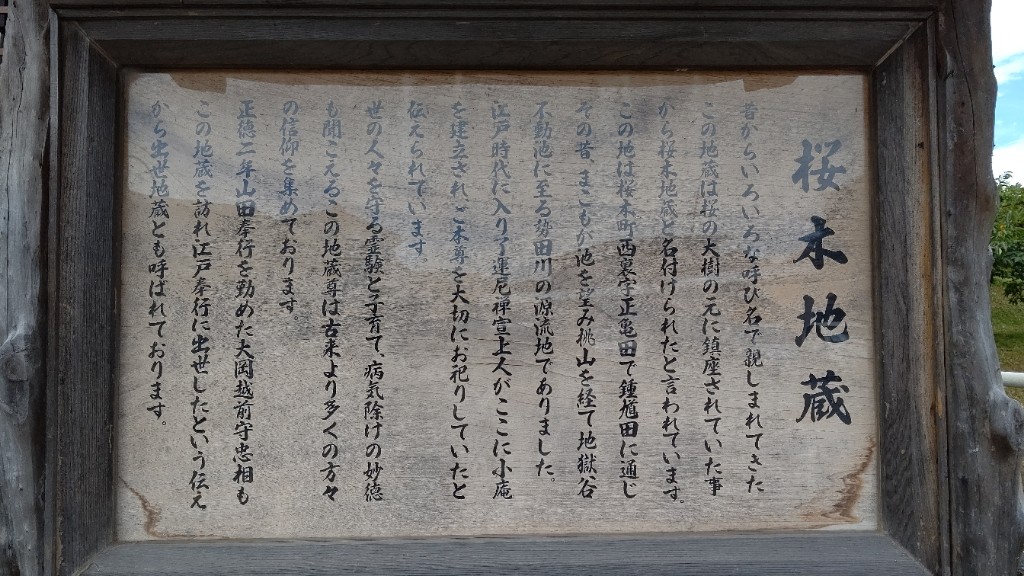 桜木地蔵
昔からいろいろな呼び名で親しまれてきた
この地蔵は桜の大樹の元に鎮座されていた事
から桜木地蔵と名付けられたと言われています。
この地は桜木町西墓字正亀田で鍾馗田に通じ
その昔、まこもが池を望み桃山を経て地獄谷
不動池に至る勢田川の源流地でありました。
江戸時代に入り了運尼禅宣上人がここに小庵
を建立され、ご本尊を大切にお祀りしていたと
伝えられています
世の人々を守る霊験と子育て、病気除けの妙徳
も聞こえるこの地蔵尊は古来より多くの方々
の信仰を集めております。
正徳二年山田奉行を勤めた大岡越前守忠相も
この地蔵を訪れ江戸奉行に出世したという伝え
から出世地蔵とも呼ばれております。